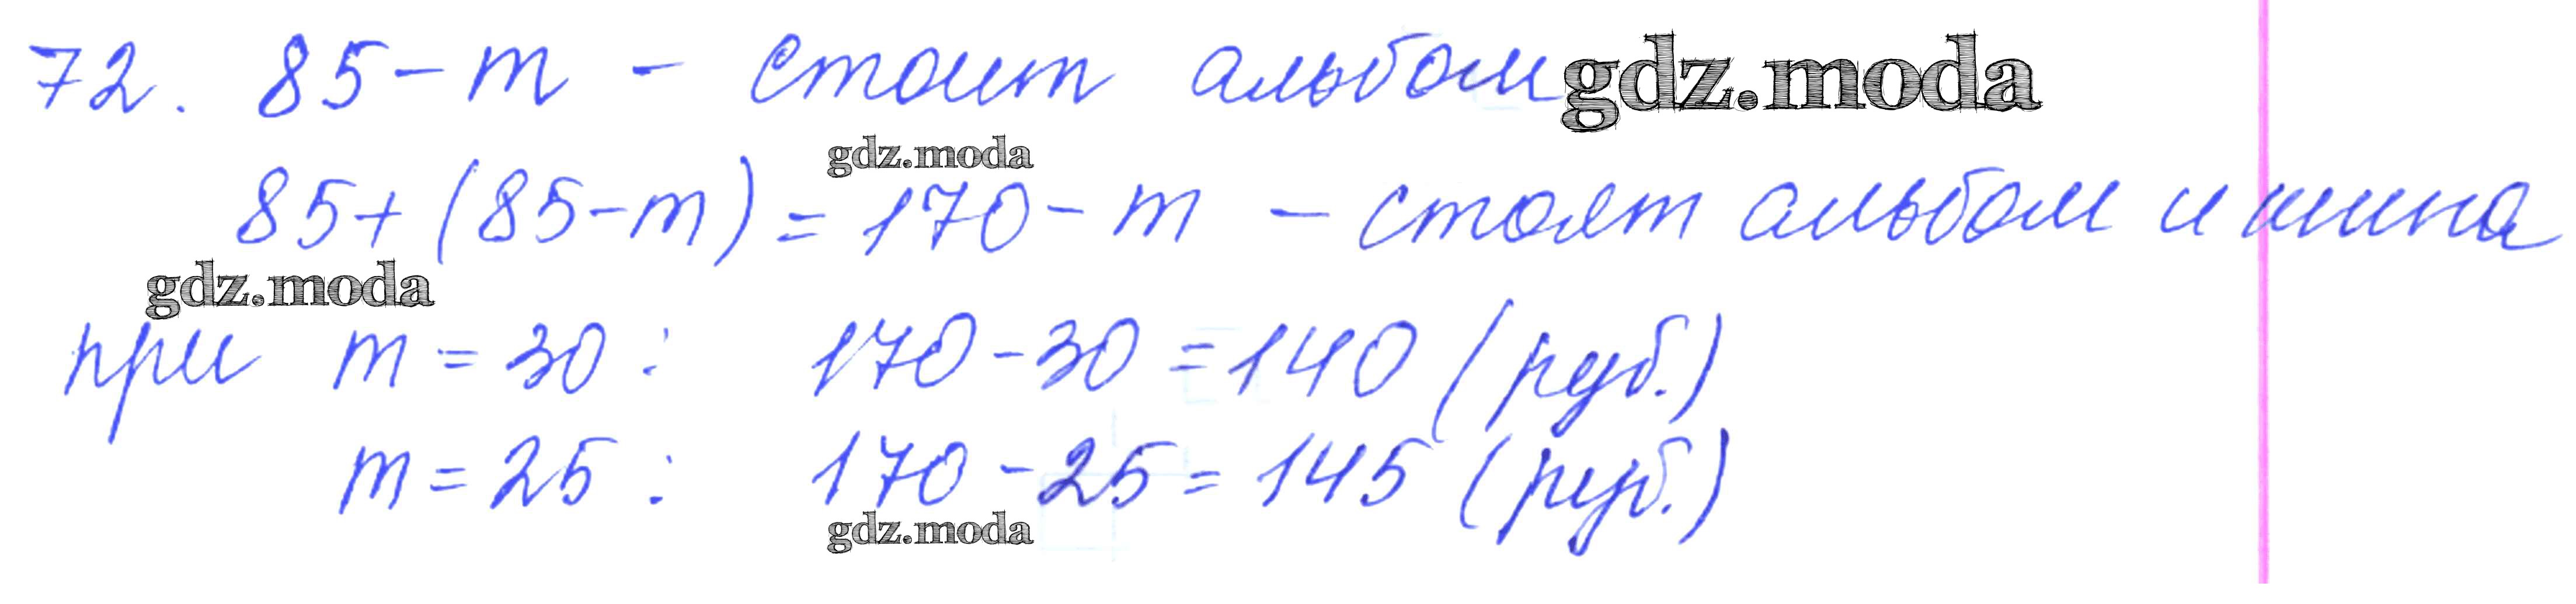 72. 85 - m - стоит альбом gdz.moda
gdz.moda
85 + (85 - m) = 170 - m - стоят альбом и шина
gdz.moda
при m = 30 : 170 - 30 = 140 (руб.)
m = 25 : 170 - 25 = 145 (руб.)
gdz.moda